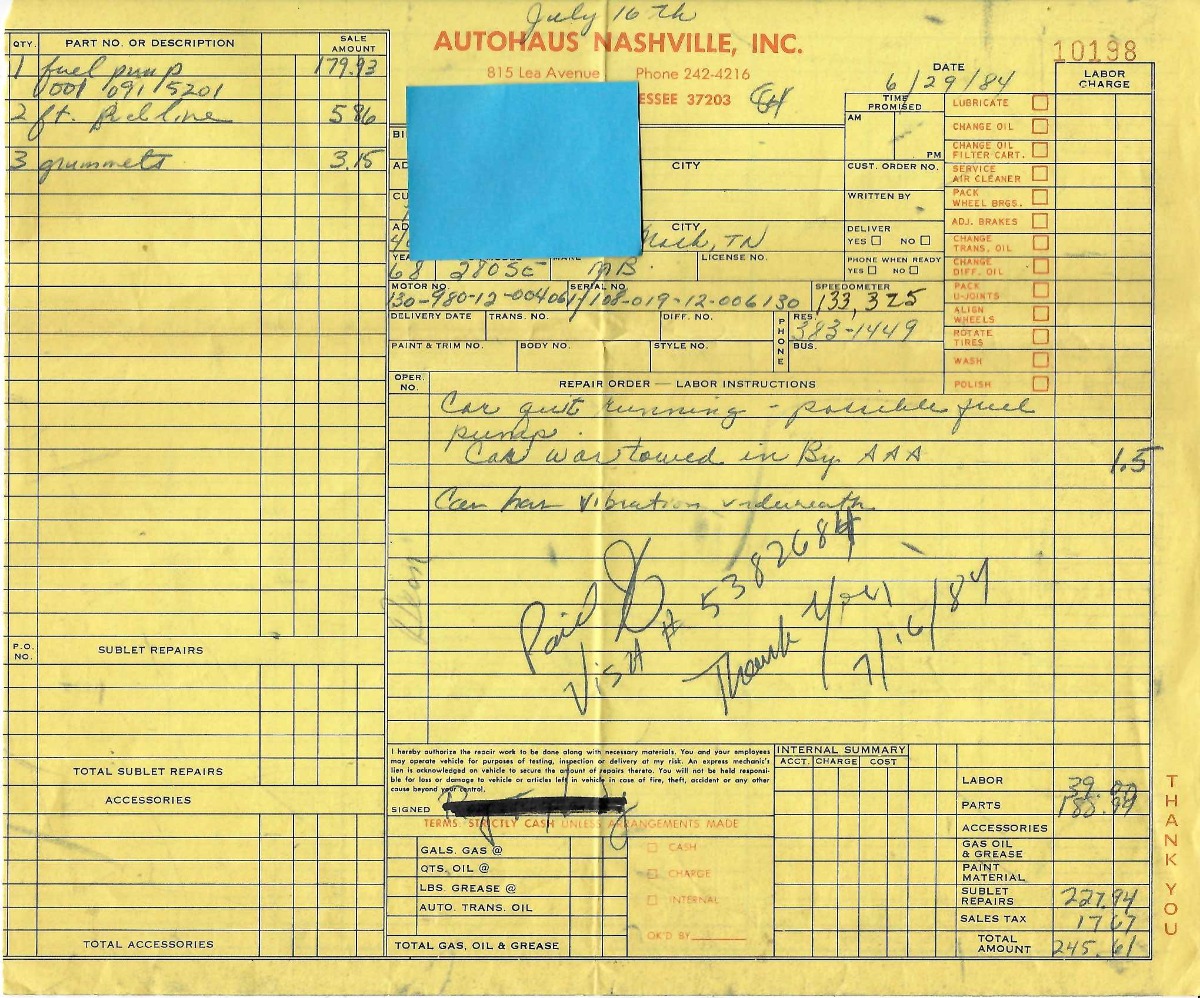 July 16th
AUTOHAUS NASHVILLE, INC.
815 Lea Avenue Phone 242-4216
ESSEE 37203
10198
DATE
6/29/84
QTY. PART NO. OR DESCRIPTION SALE AMOUNT
1 fuel pump 179.93
001 091 5201
2 ft. fuel line 5 86
3 grummets 3.15
TIME PROMISED
AM
PM
CUST. ORDER NO.
WRITTEN BY
DELIVER
YES NO
PHONE WHEN READY
YES NO
LABOR CHARGE
LUBRICATE
CHANGE OIL
CHANGE OIL FILTER CART.
SERVICE AIR CLEANER
PACK WHEEL BRGS.
ADJ. BRAKES
CHANGE TRANS. OIL
CHANGE DIFF. OIL
PACK U-JOINTS
ALIGN WHEELS
ROTATE TIRES
WASH
POLISH
BI
AD CITY
CU
AD CITY
Nash, TN
YEAR MAKE LICENSE NO.
68 280SE MB.
MOTOR NO. SERIAL NO. SPEEDOMETER
130-980-12-004061/108-019-12-006130 133,325
DELIVERY DATE TRANS. NO. DIFF. NO. PHONE RES.
383-1449
PAINT & TRIM NO. BODY NO. STYLE NO. BUS.
OPER. NO. REPAIR ORDER — LABOR INSTRUCTIONS
Car quit running - possible fuel
pump.
Car was towed in By AAA 1.5
Car has vibration underneath
Deon
Paid
Visa # 5382684
Thank You
7/16/84
P.O. NO. SUBLET REPAIRS
TOTAL SUBLET REPAIRS
ACCESSORIES
TOTAL ACCESSORIES
I hereby authorize the repair work to be done along with necessary materials. You and your employees
may operate vehicle for purposes of testing, inspection or delivery at my risk. An express mechanic's
lien is acknowledged on vehicle to secure the amount of repairs thereto. You will not be held responsi-
ble for loss or damage to vehicle or articles left in vehicle in case of fire, theft, accident or any other
cause beyond your control.
SIGNED
TERMS: STRICTLY CASH UNLESS ARRANGEMENTS MADE
GALS. GAS @
QTS. OIL @
LBS. GREASE @
AUTO. TRANS. OIL
TOTAL GAS, OIL & GREASE
CASH
CHARGE
INTERNAL
OK'D BY
INTERNAL SUMMARY
ACCT. CHARGE COST
LABOR 39.00
PARTS 188.94
ACCESSORIES
GAS OIL & GREASE
PAINT MATERIAL
SUBLET REPAIRS 227.94
SALES TAX 17 67
TOTAL AMOUNT 245.61
THANK YOU